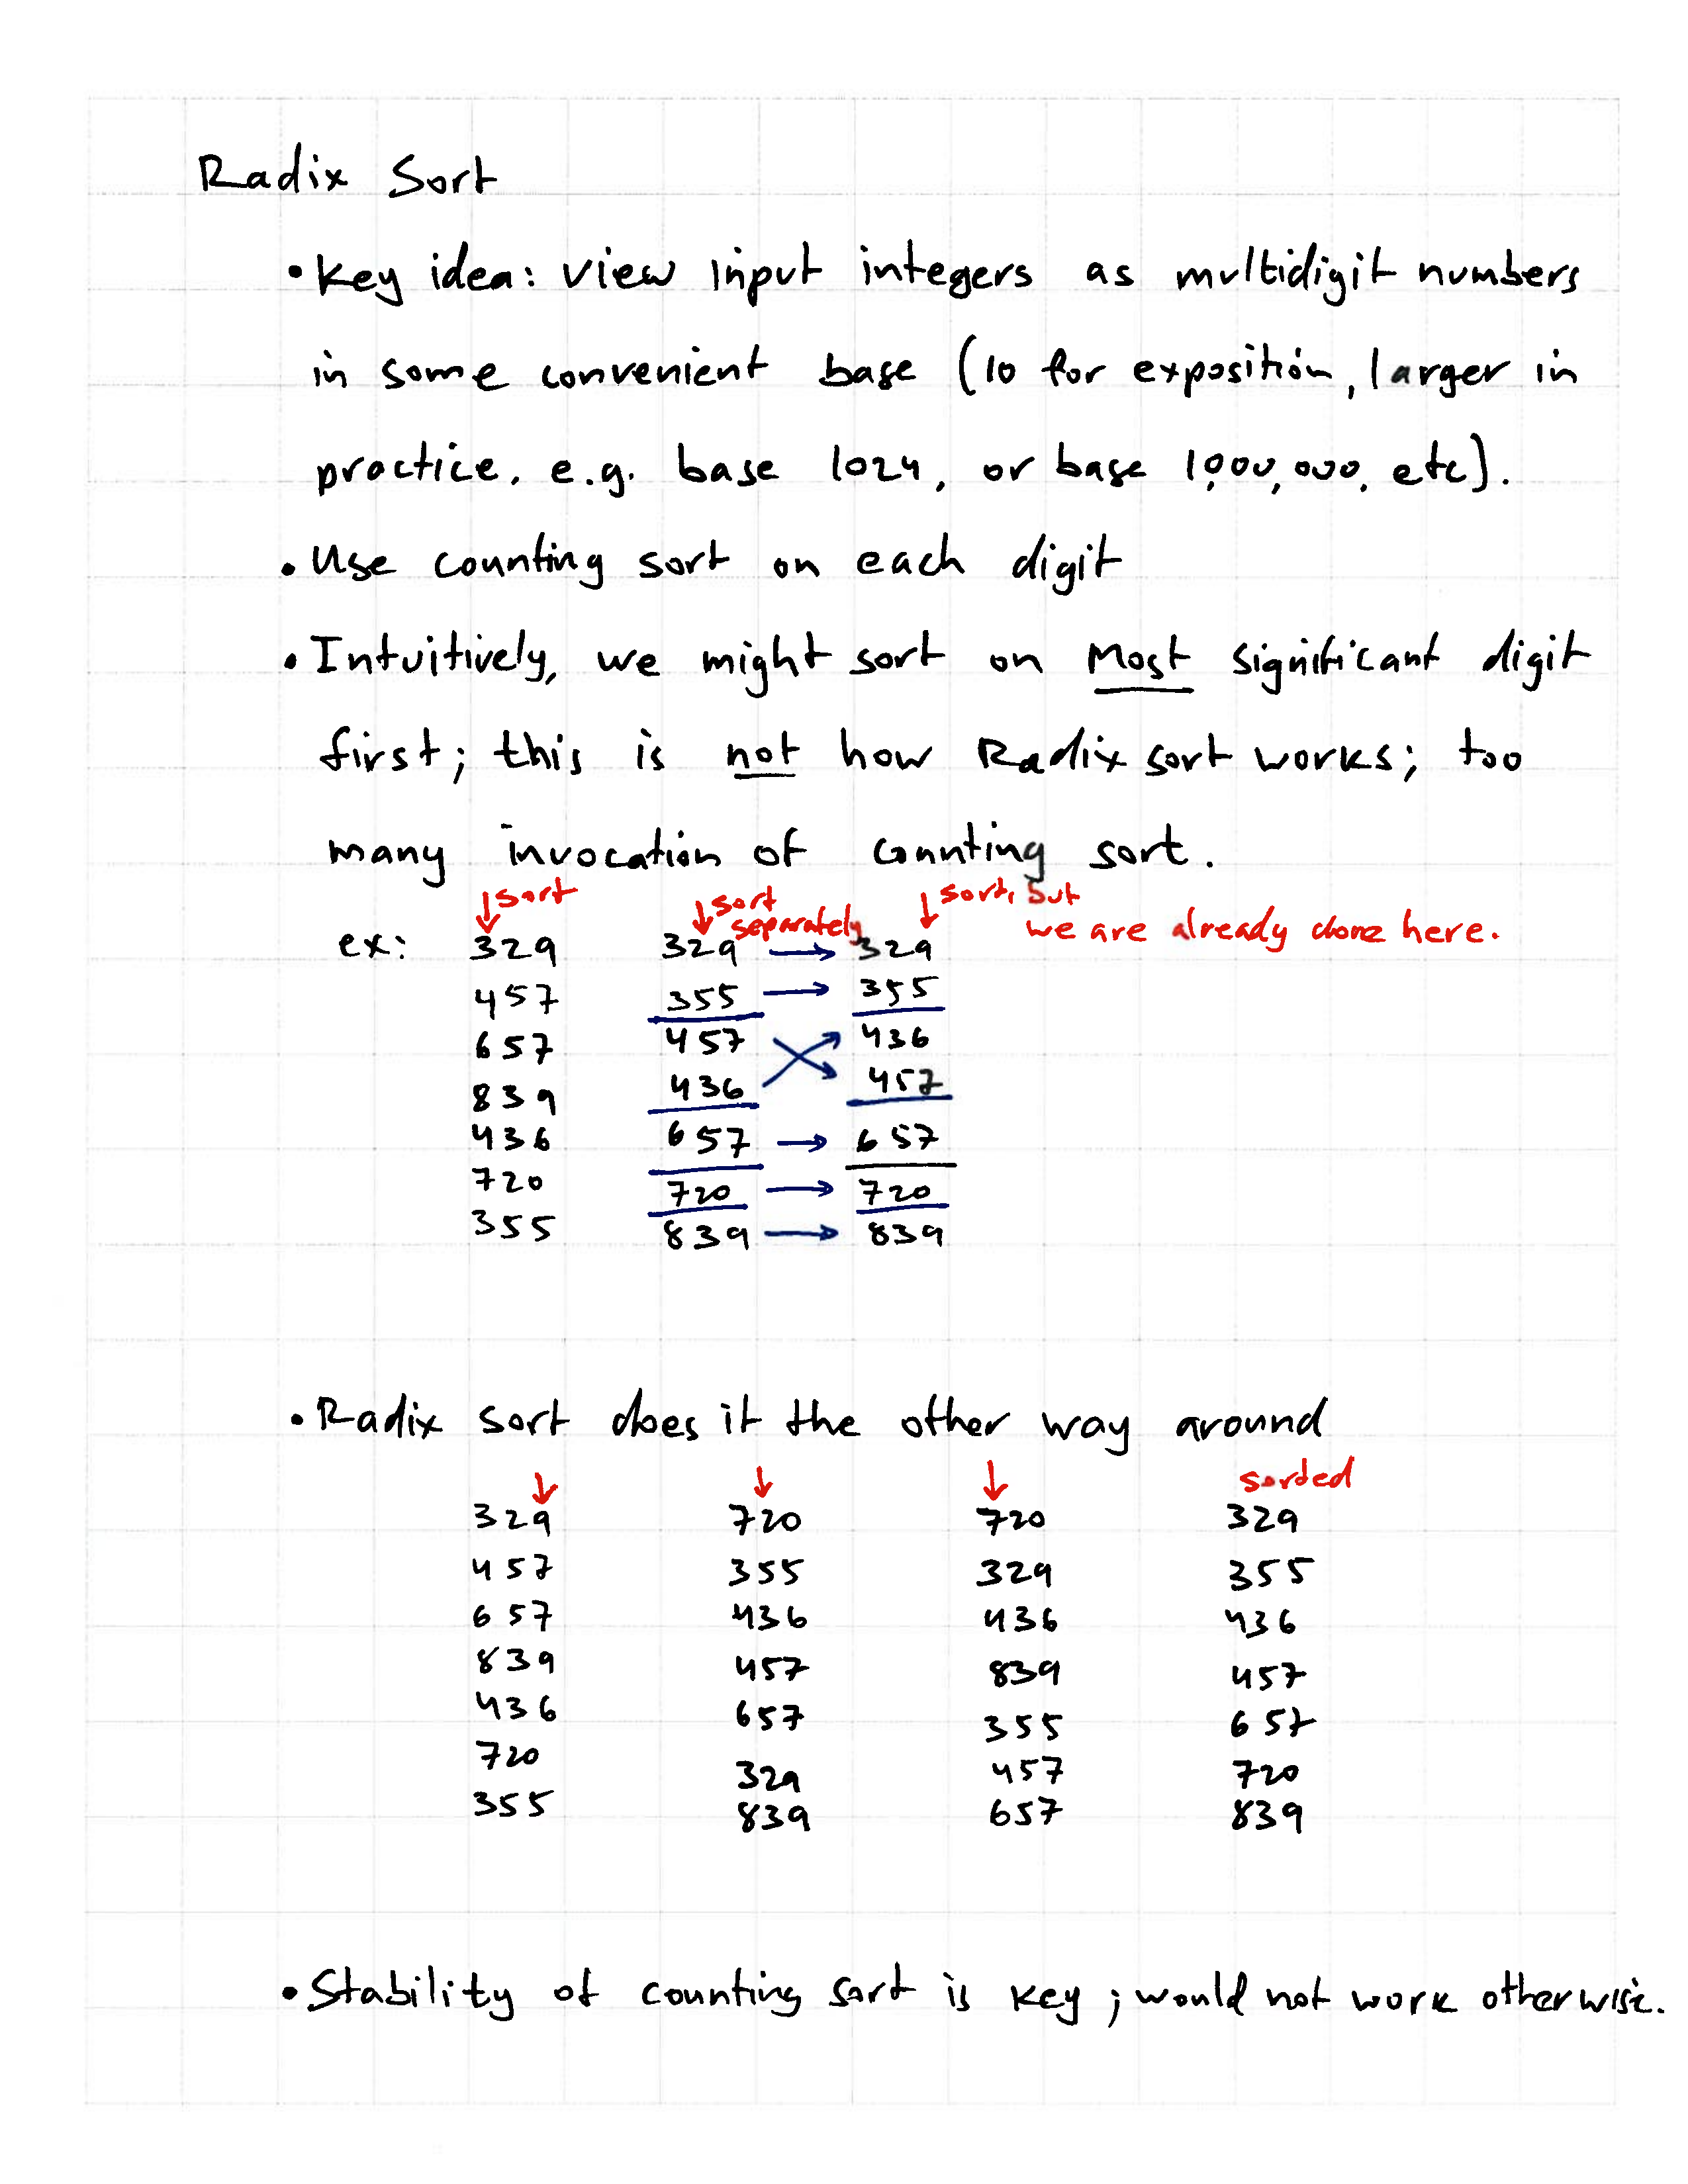 Radix Sort
• Key idea: View input integers as multidigit numbers
in some convenient base (10 for exposition, larger in
practice. e.g. base 1024, or base 1,000,000, etc).
• Use counting sort on each digit
• Intuitively, we might sort on Most significant digit
first; this is not how Radix sort works; too
many invocation of counting sort.
↓sort ↓sort separately ↓sort, but
we are already done here.
ex: 329 329 → 329
457 355 → 355
657 457 436
839 436 457
436 657 → 657
720 720 → 720
355 839 → 839
• Radix sort does it the other way around
↓ ↓ ↓ sorted
329 720 720 329
457 355 329 355
657 436 436 436
839 457 839 457
436 657 355 657
720 329 457 720
355 839 657 839
• Stability of counting sort is key; would not work otherwise.